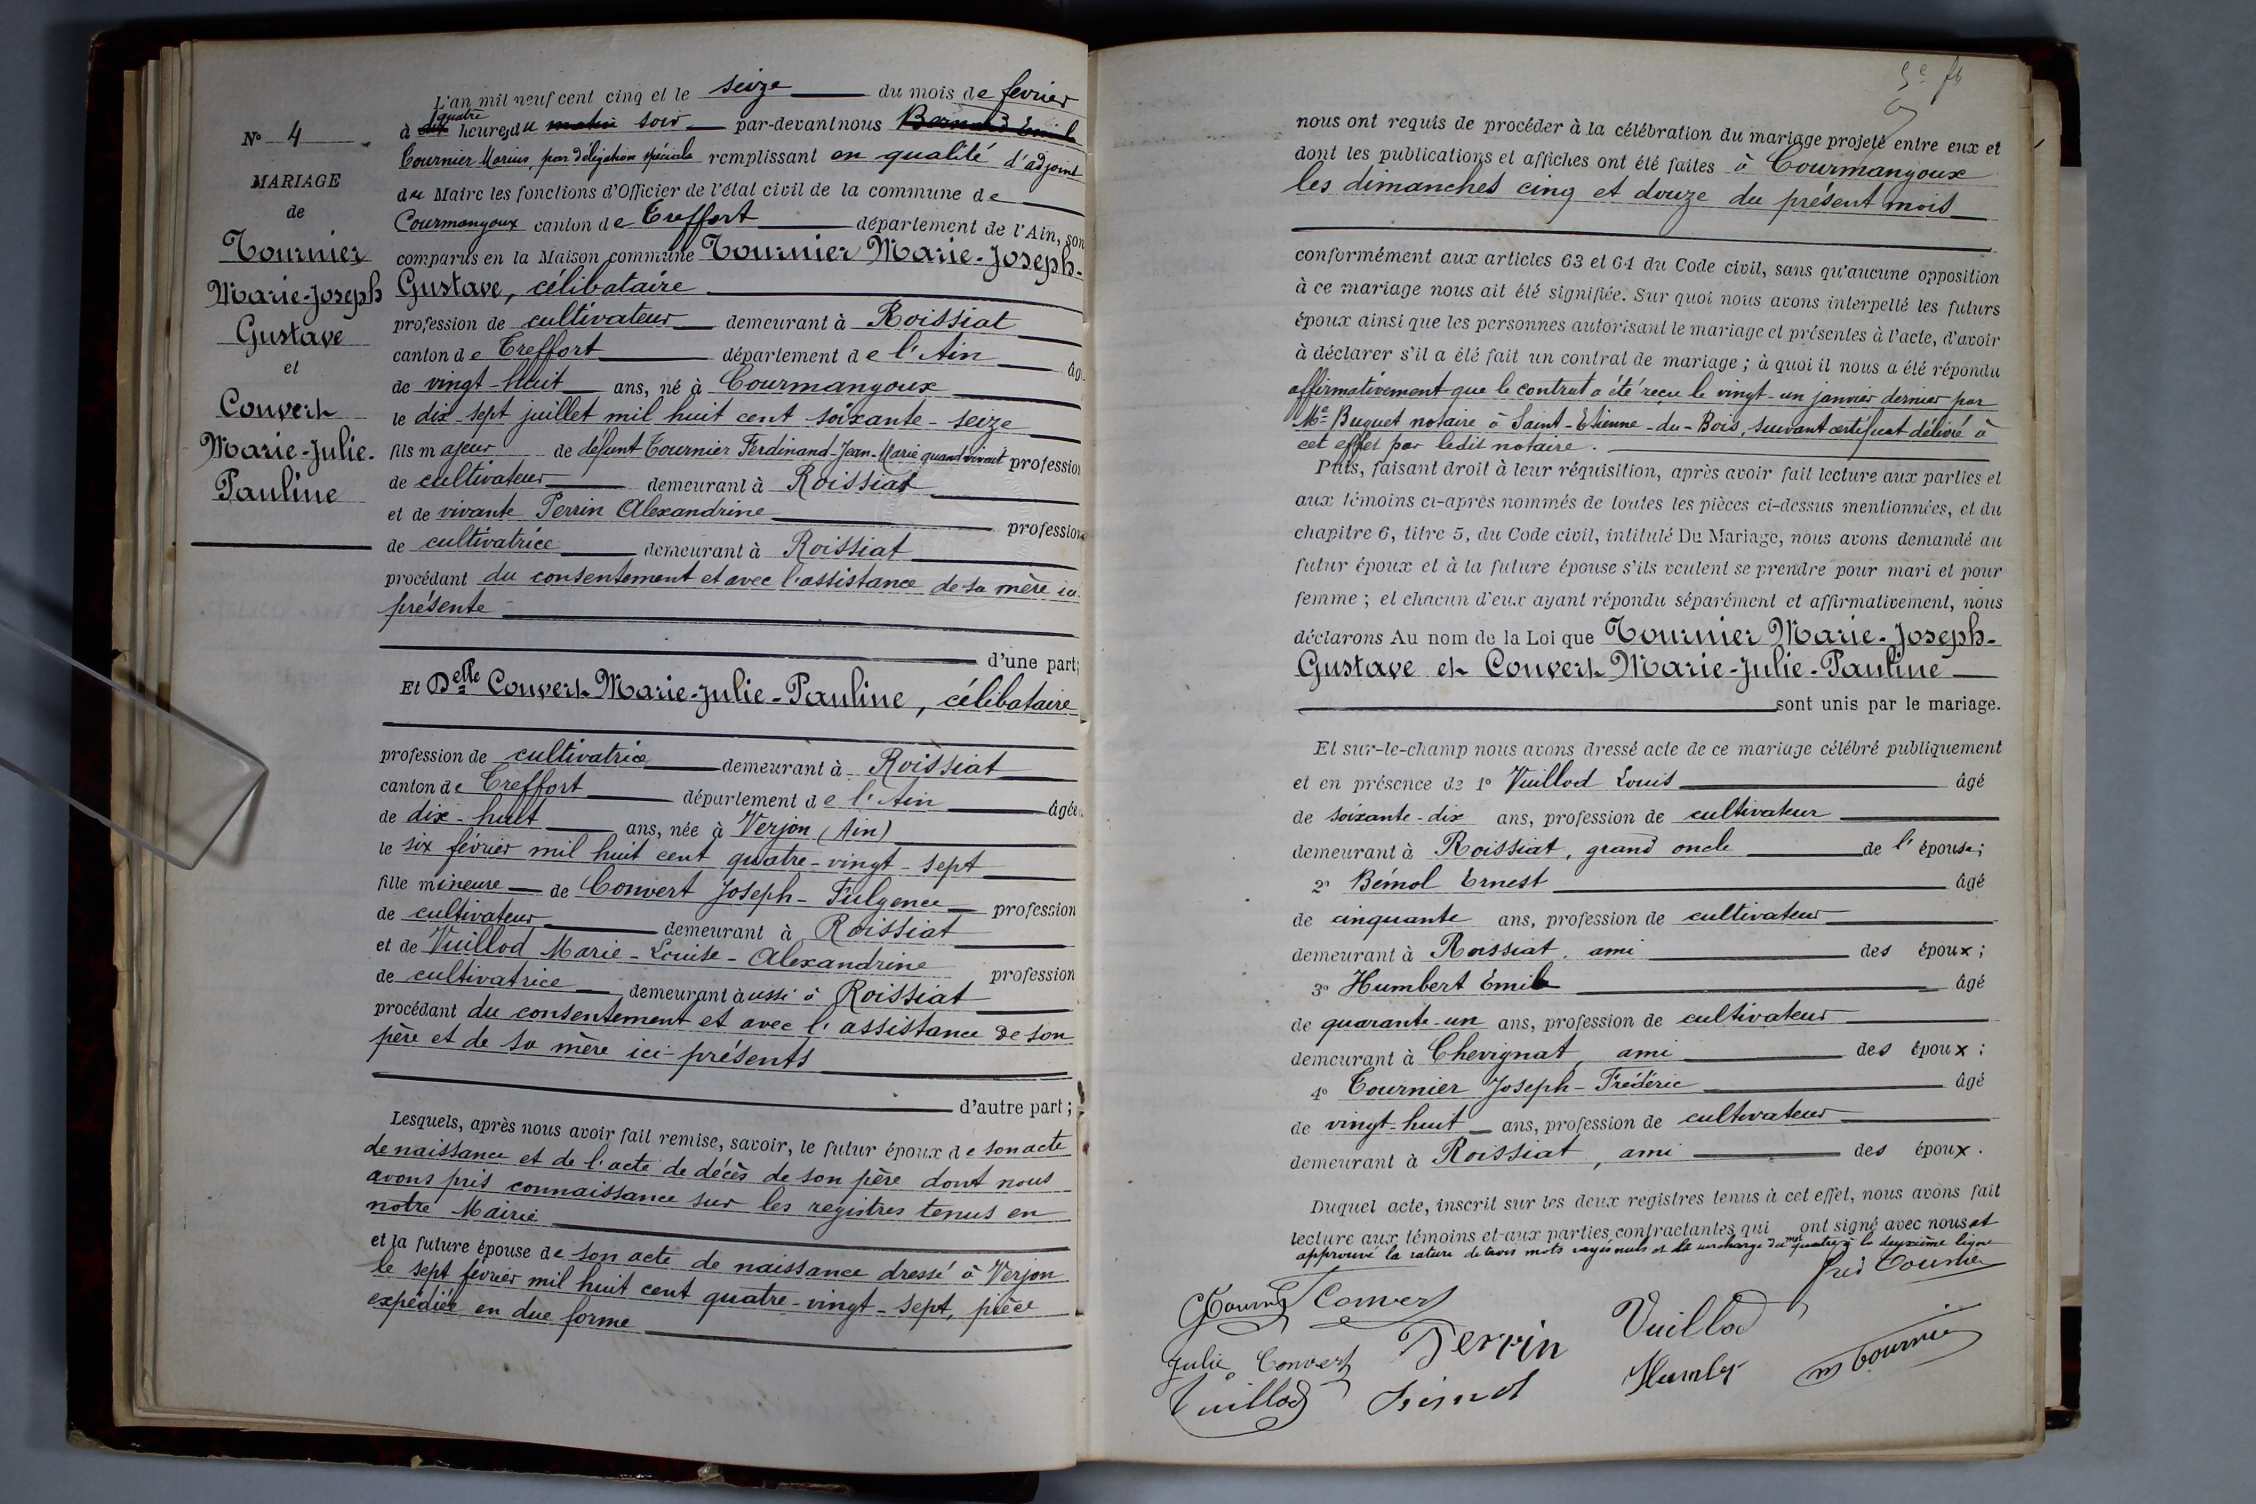 N° 4
MARIAGE
de
Tournier
Marie-Joseph
Gustave
et
Convert
Marie-Julie-
Pauline
L'an mil neuf cent cinq et le seize du mois de février
à dix quatre heures du matin soir par-devant nous Bernard Emile
Tournier Marius, par délégation spéciale remplissant en qualité d'adjoint
du Maire les fonctions d'Officier de l'état civil de la commune de
Courmangoux canton de Treffort département de l'Ain, son
comparus en la Maison commune Tournier Marie-Joseph-
Gustave, célibataire
profession de cultivateur demeurant à Roissiat
canton de Treffort département de l'Ain âg
de vingt-huit ans, né à Courmangoux
le dix-sept juillet mil huit cent soixante-seize
fils majeur de défunt Tournier Ferdinand-Jean-Marie quand vivait profession
de cultivateur demeurant à Roissiat
et de vivante Perrin Alexandrine profession
de cultivatrice demeurant à Roissiat
procédant du consentement et avec l'assistance de sa mère ici
présente
d'une part;
Et Delle Convert Marie-Julie-Pauline, célibataire
profession de cultivatrice demeurant à Roissiat
canton de Treffort département de l'Ain âgée
de dix-huit ans, née à Verjon (Ain)
le six février mil huit cent quatre-vingt-sept
fille mineure de Convert Joseph-Fulgence profession
de cultivateur demeurant à Roissiat
et de Vuillod Marie-Louise-Alexandrine profession
de cultivatrice demeurant aussi à Roissiat
procédant du consentement et avec l'assistance de son
père et de sa mère ici-présents
d'autre part;
Lesquels, après nous avoir fait remise, savoir, le futur époux de son acte
de naissance et de l'acte de décès de son père dont nous
avons pris connaissance sur les registres tenus en
notre Mairie
et la future épouse de son acte de naissance dressé à Verjon
le sept février mil huit cent quatre-vingt-sept, pièce
expédiée en due forme
nous ont requis de procéder à la célébration du mariage projeté entre eux et
dont les publications et affiches ont été faites à Courmangoux
les dimanches cinq et douze du présent mois
conformément aux articles 63 et 64 du Code civil, sans qu'aucune opposition
à ce mariage nous ait été signifiée. Sur quoi nous avons interpellé les futurs
époux ainsi que les personnes autorisant le mariage et présentes à l'acte, d'avoir
à déclarer s'il a été fait un contrat de mariage; à quoi il nous a été répondu
affirmativement que le contrat a été reçu le vingt-un janvier dernier par
Me Buguet notaire à Saint-Etienne-du-Bois, suivant certificat délivré à
cet effet par ledit notaire.
Puis, faisant droit à leur réquisition, après avoir fait lecture aux parties et
aux témoins ci-après nommés de toutes les pièces ci-dessus mentionnées, et du
chapitre 6, titre 5, du Code civil, intitulé Du Mariage, nous avons demandé au
futur époux et à la future épouse s'ils veulent se prendre pour mari et pour
femme; et chacun d'eux ayant répondu séparément et affirmativement, nous
déclarons Au nom de la Loi que Tournier Marie-Joseph-
Gustave et Convert Marie-Julie-Pauline
sont unis par le mariage.
Et sur-le-champ nous avons dressé acte de ce mariage célébré publiquement
et en présence de 1° Vuillod Louis âgé
de soixante-dix ans, profession de cultivateur
demeurant à Roissiat, grand oncle de l'épouse;
2° Bémol Ernest âgé
de cinquante ans, profession de cultivateur
demeurant à Roissiat, ami des époux;
3° Humbert Emile âgé
de quarante-un ans, profession de cultivateur
demeurant à Chevignat, ami des époux;
4° Tournier Joseph-Frédéric âgé
de vingt-huit ans, profession de cultivateur
demeurant à Roissiat, ami des époux.
Duquel acte, inscrit sur les deux registres tenus à cet effet, nous avons fait
lecture aux témoins et aux parties contractantes qui ont signé avec nous et
approuvé la rature de trois mots rayés nuls et la surcharge du mot quatre à la deuxième ligne
Fred Tournier
G Tournier Convert
Vuillod
Perrin
Julie Convert
Humbert
M Tournier
Vuillod
Bémol